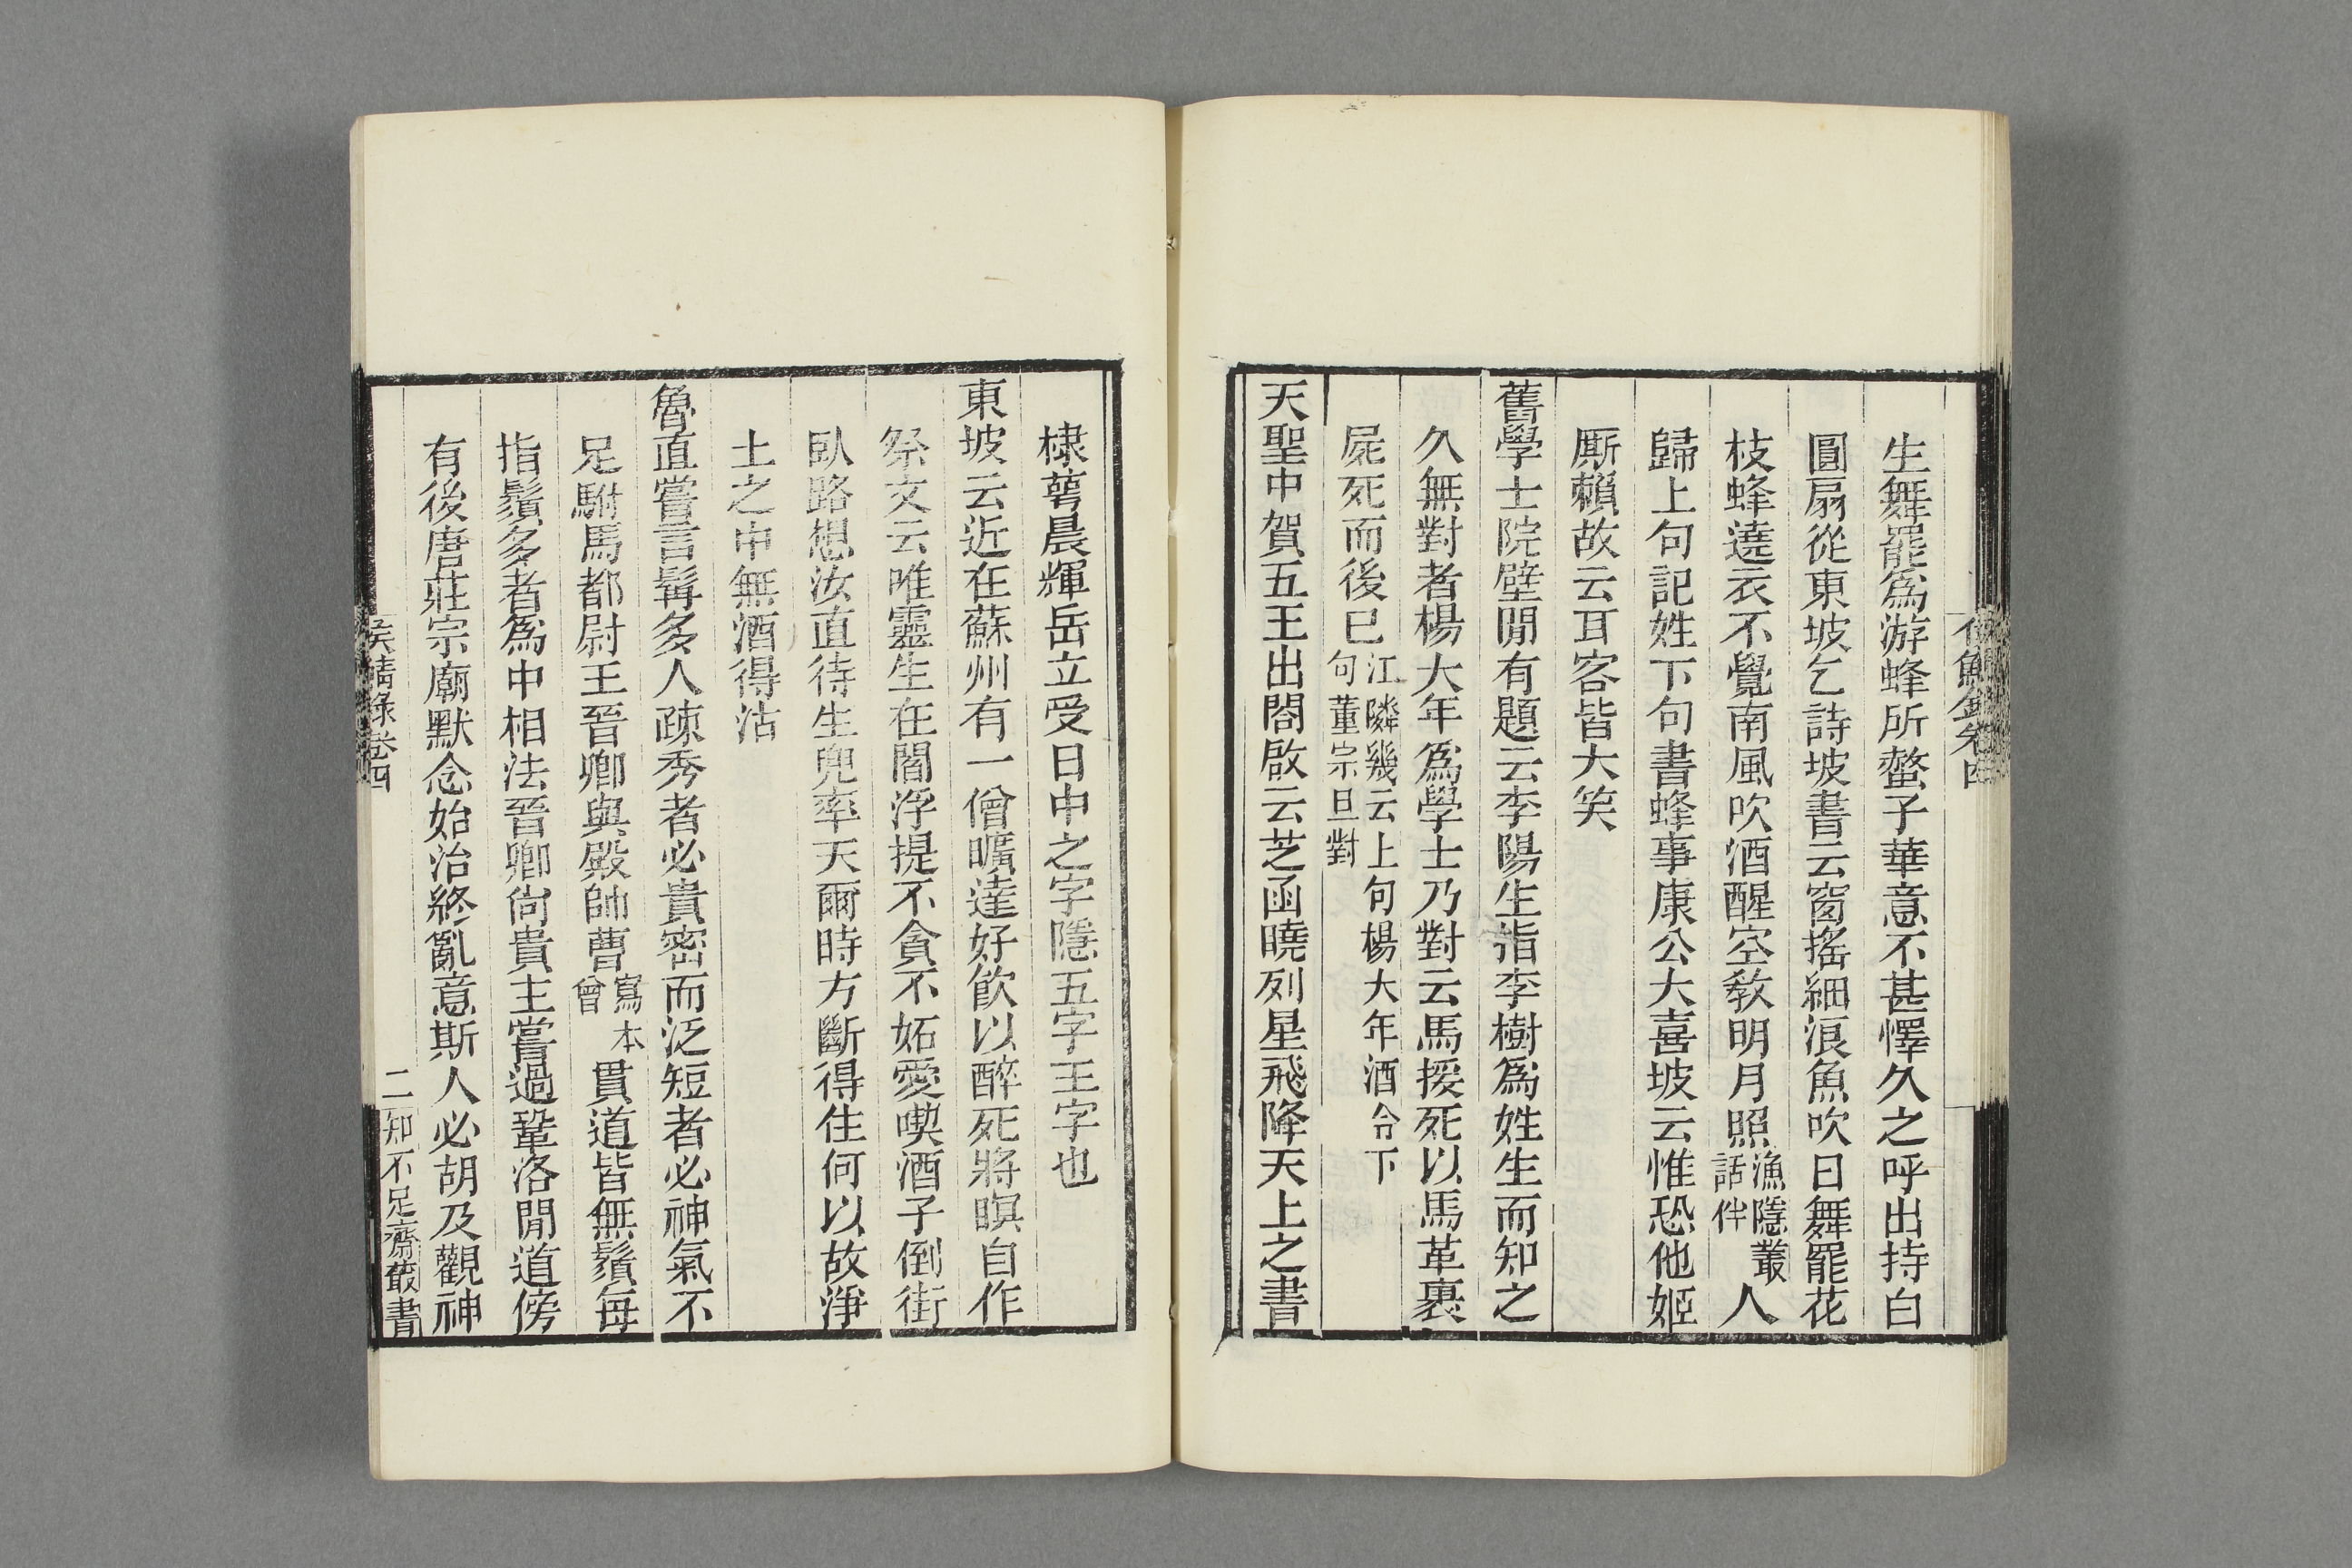 生舞罷爲游蜂所螫子華意不甚懌久之呼出持白
圓扇從東坡乞詩坡書云窗搖細浪魚吹日舞罷花
枝蜂遶衣不覺南風吹酒醒空教明月照漁隱叢話伴人
歸上句記姓下句書蜂事康公大喜坡云惟恐他姬
厮賴故云耳客皆大笑
舊學士院壁閒有題云李陽生指李樹爲姓生而知之
久無對者楊大年爲學士乃對云馬援死以馬革裹
屍死而後已江隣幾云上句楊大年酒令下句董宗旦對
天聖中賀五王出閤啟云芝函曉列星飛降天上之書
棣萼晨輝岳立受日中之字隱五字王字也
東坡云近在蘇州有一僧曠達好飲以醉死將暝自作
祭文云唯靈生在閻浮提不貪不妬愛喫酒子倒街
臥路想汝直待生兜率天爾時方斷得住何以故淨
土之中無酒得沽
魯直嘗言髯多人疎秀者必貴密而泛短者必神氣不
足駙馬都尉王晉卿與殿帥曹寫本曾貫道皆無鬚每
指鬚多者爲中相法晉卿尙貴主嘗過鞏洛閒道傍
有後唐莊宗廟默念始治終亂意斯人必胡及觀神
侯鯖錄卷四
二
知不足齋叢書